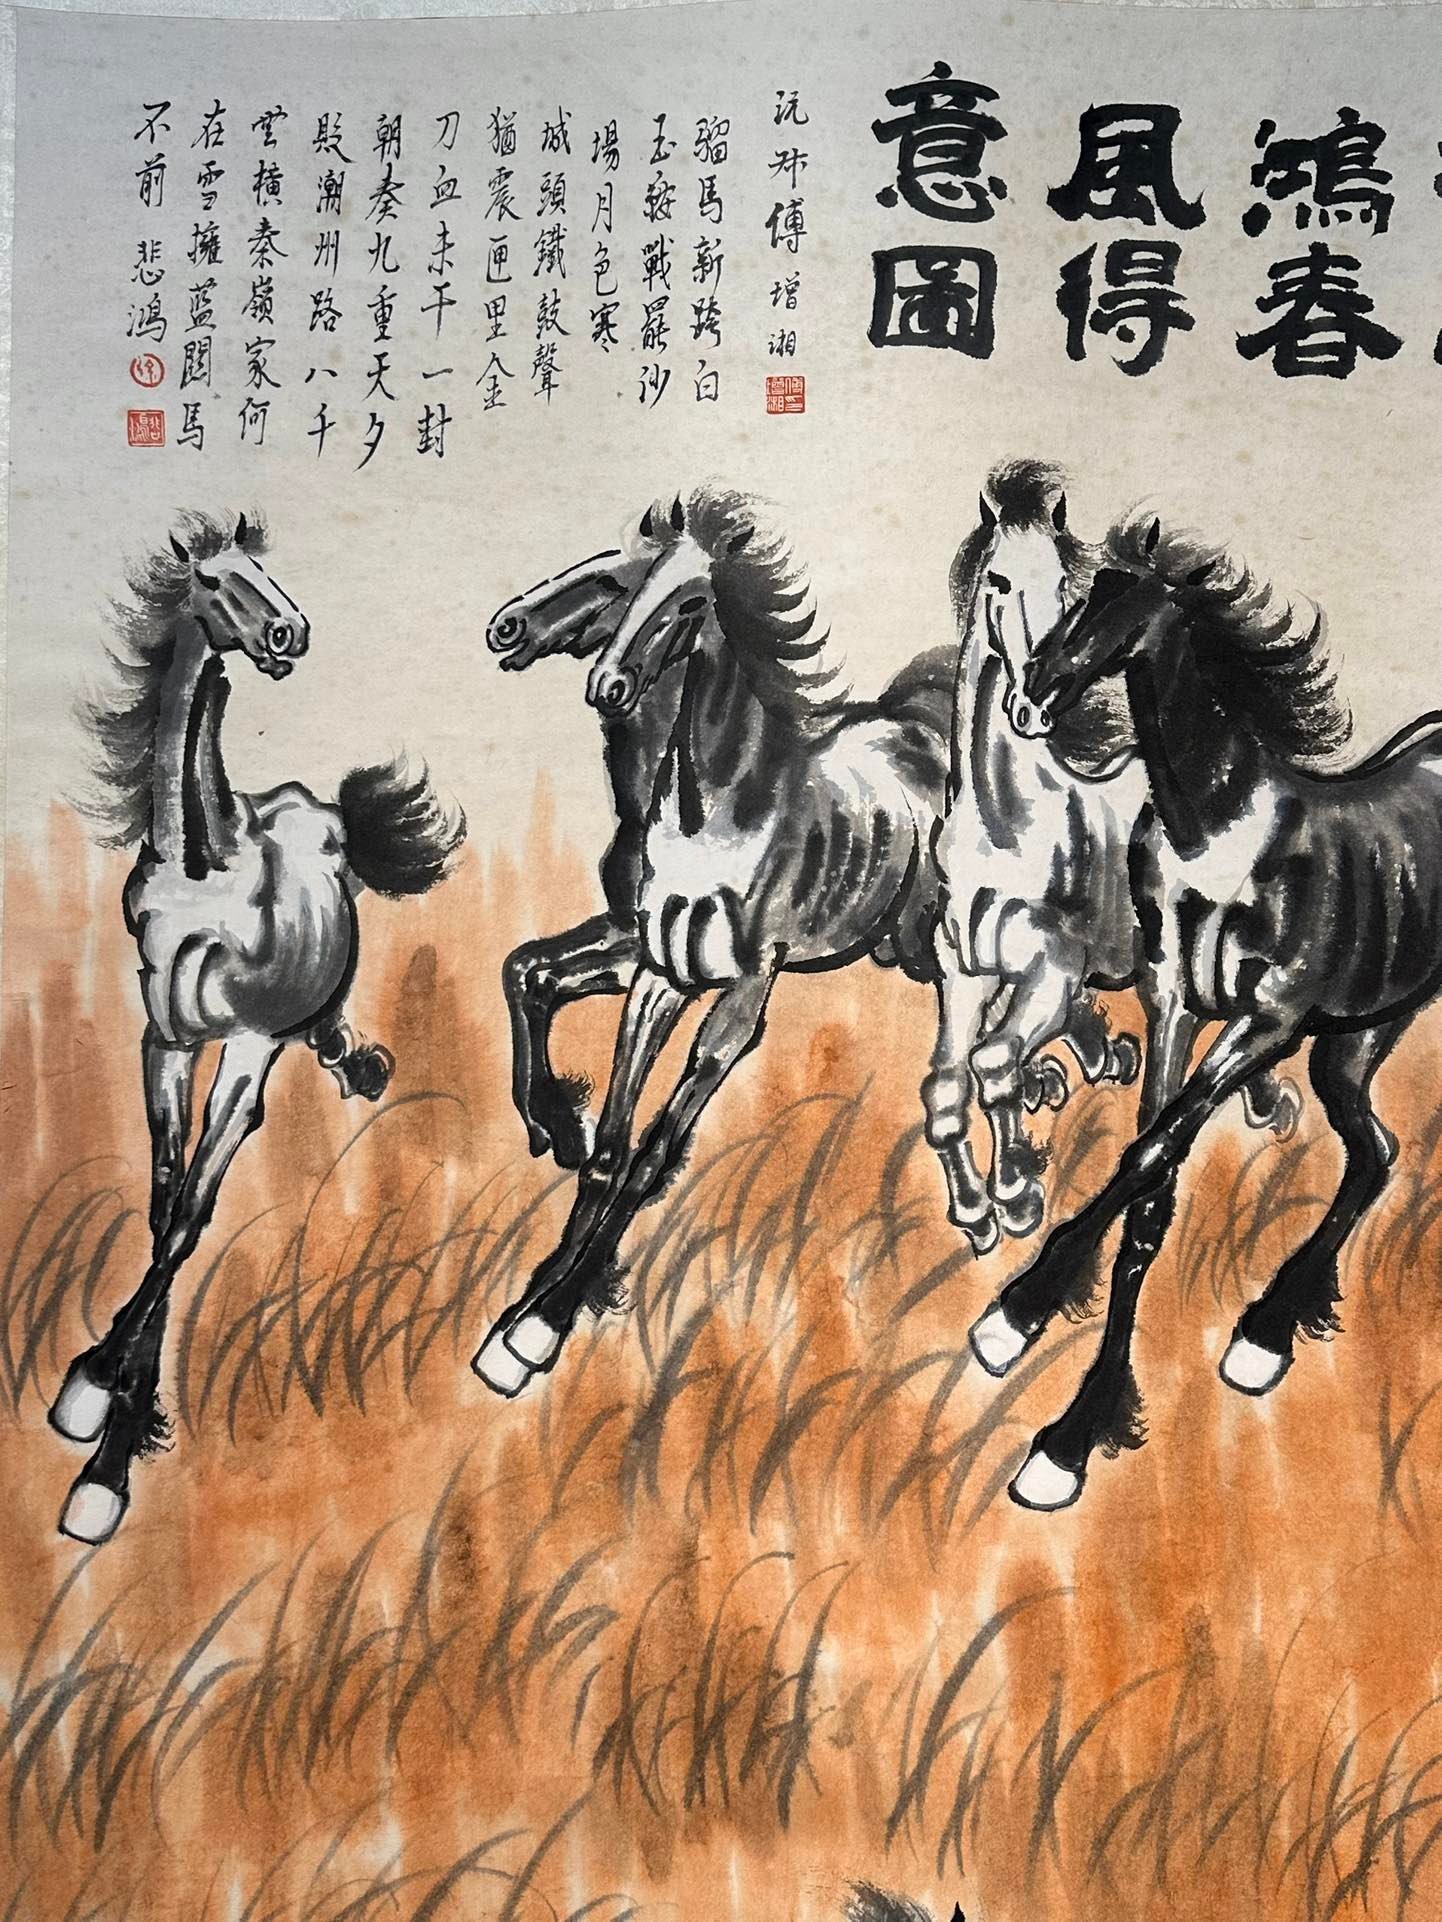 鴻春
風得
意圖
沅舟傅增湘
騮馬新跨白
玉鞍戰罷沙
場月色寒
城頭鐵鼓聲
猶震匣里金
刀血未干一封
朝奏九重天夕
貶潮州路八千
雲橫秦嶺家何
在雪擁藍關馬
不前 悲鴻